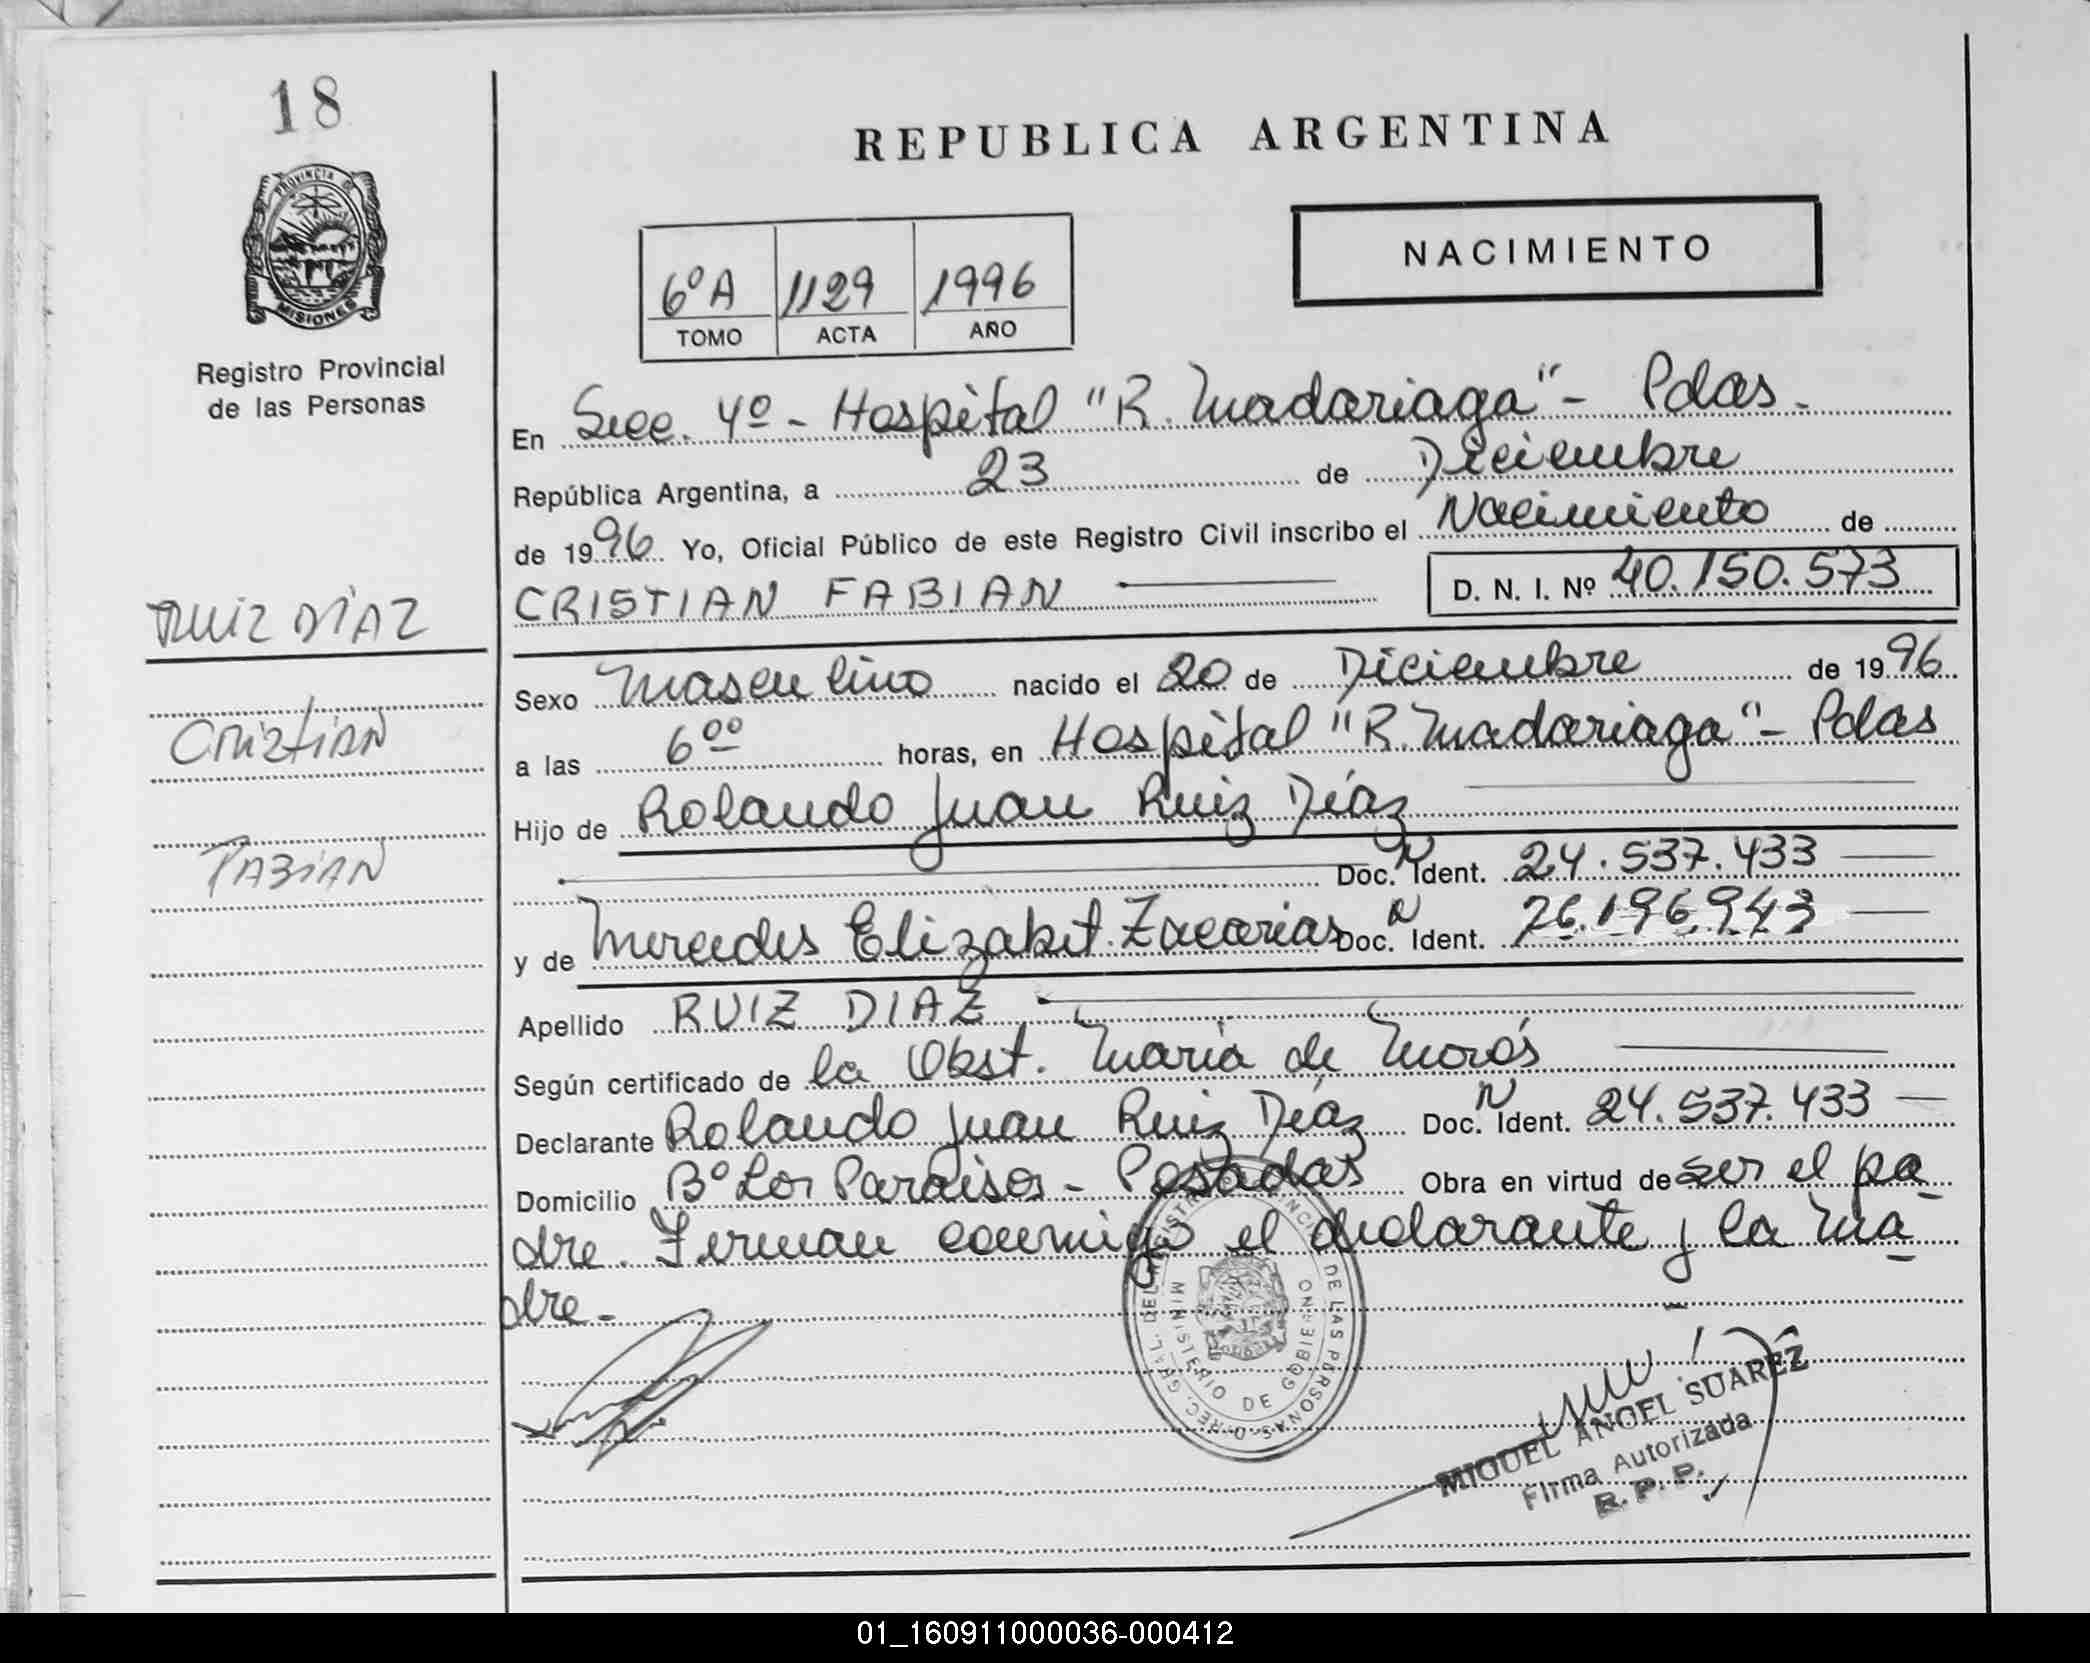 18
PROVINCIA DE
MISIONES
Registro Provincial
de las Personas
REPUBLICA ARGENTINA
NACIMIENTO
6º A 1129 1996
TOMO ACTA AÑO
En Secc. 4º - Hospital "R. Madariaga" - Pdas.
República Argentina, a 23 de Diciembre
de 1996 Yo, Oficial Público de este Registro Civil inscribo el Nacimiento de
CRISTIAN FABIAN D. N. I. Nº 40.150.573
RUIZ DIAZ
Cristian
FABIAN
Sexo Masculino nacido el 20 de Diciembre de 1996
a las 600 horas, en Hospital "R. Madariaga" - Pdas
Hijo de Rolando Juan Ruiz Díaz
Doc. N Ident. 24.537.433
y de Mercedes Elizabet Zacarias Doc. N Ident. 26.196.943
Apellido RUIZ DIAZ
Según certificado de la Obst. María de Morós
Declarante Rolando Juan Ruiz Díaz Doc. N Ident. 24.537.433
Domicilio Bº Los Paraisos - Posadas Obra en virtud de ser el pa
dre. Firman conmigo el declarante y la ma
dre.-
DIREC. GRAL. DEL REGISTRO PROVINCIAL DE LAS PERSONAS
MINISTERIO DE GOBIERNO
MIGUEL ANGEL SUAREZ
Firma Autorizada
R. P. P.
01_160911000036-000412